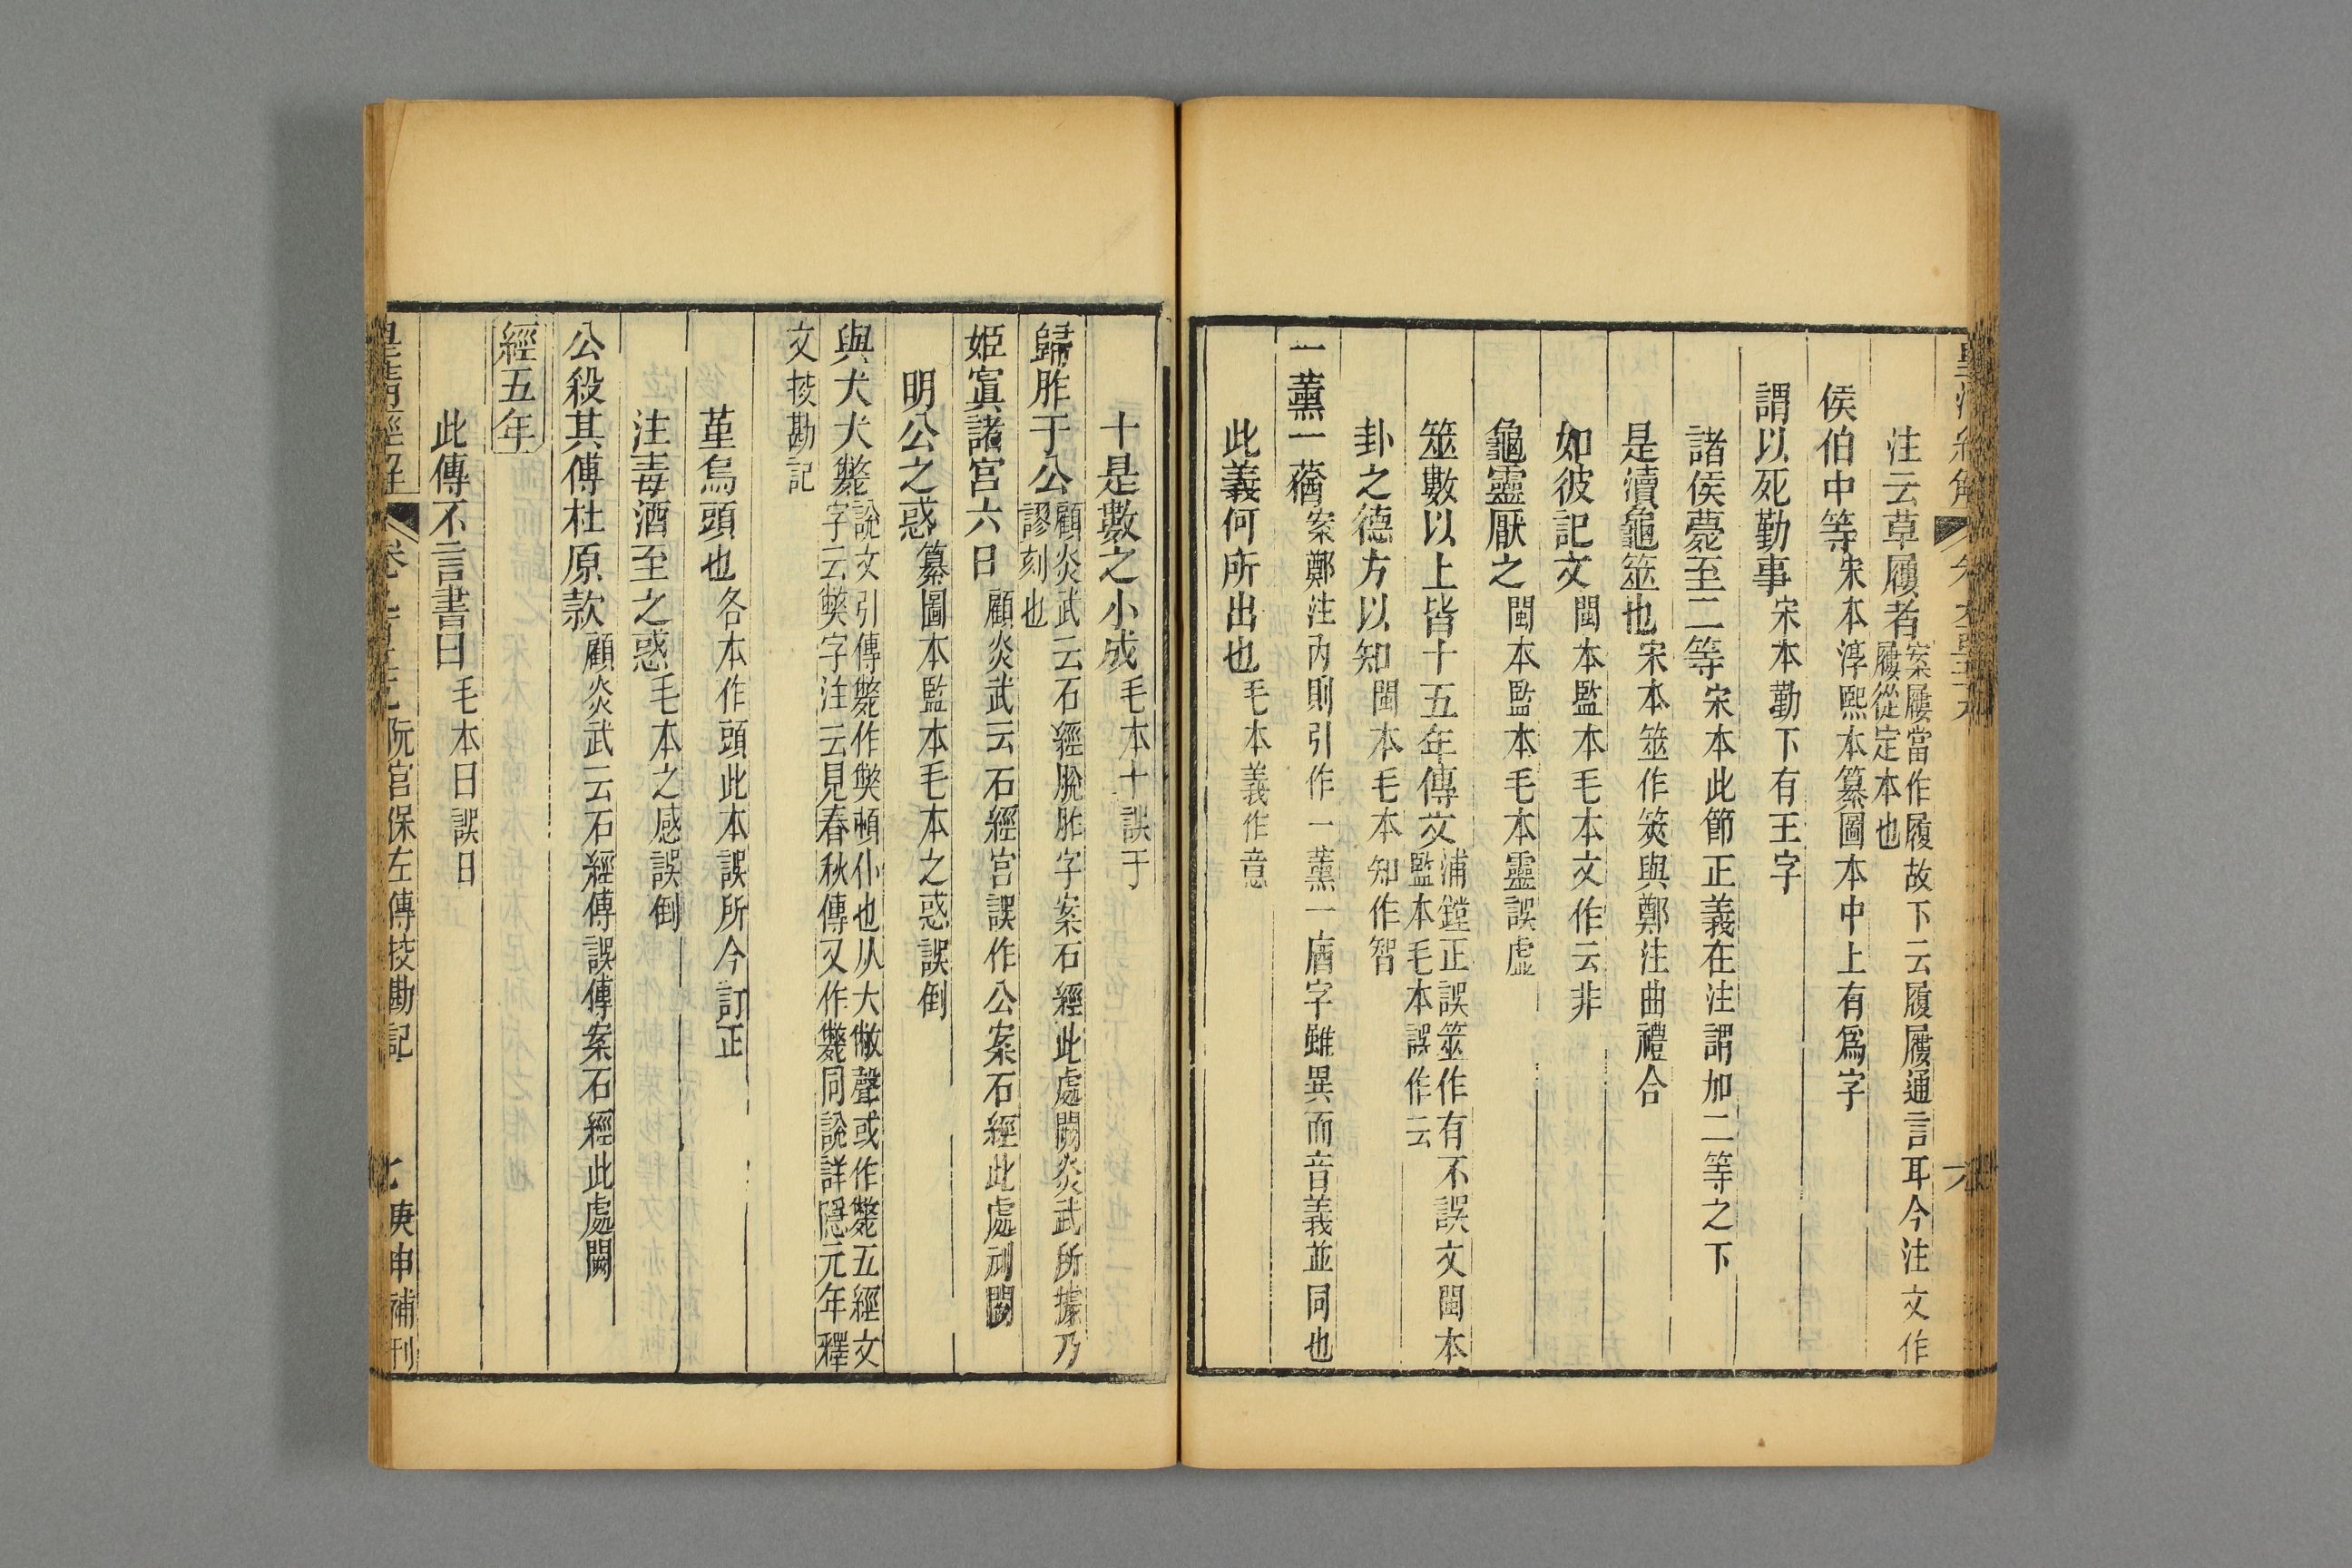 注云草履者案屨當作履故下云履屨通言耳今注文作
履從定本也
侯伯中等宋本淳熙本纂圖本中上有爲字
謂以死勤事宋本勤下有王字
諸侯薨至二等宋本此節正義在注謂加二等之下
是瀆龜筮也宋本筮作筴與鄭注曲禮合
如彼記文閩本監本毛本文作云非
龜靈厭之閩本監本毛本靈誤虛
筮數以上皆十五年傳文浦鏜正誤筮作有不誤文閩本
監本毛本誤作云
卦之德方以知閩本毛本知作智
一薰一蕕案鄭注内則引作一薰一庮字雖異而音義並同也
此義何所出也毛本義作意
十是數之小成毛本十誤于
歸胙于公顧炎武云石經脫胙字案石經此處闕炎武所據乃
謬刻也
姬寘諸宮六日顧炎武云石經宮誤作公案石經此處刓闕
明公之惑纂圖本監本毛本之惑誤倒
與犬犬斃說文引傳斃作獘頓仆也从犬敝聲或作斃五經文
字云獘字注云見春秋傳又作斃同說詳隱元年釋
文挍勘記
堇烏頭也各本作頭此本誤所今訂正
注毒酒至之惑毛本之感誤倒
公殺其傅杜原款顧炎武云石經傅誤傳案石經此處闕
經五年
此傳不言書曰毛本日誤曰
皇清經解 阮宮保左傳挍勘記 庚申補刊